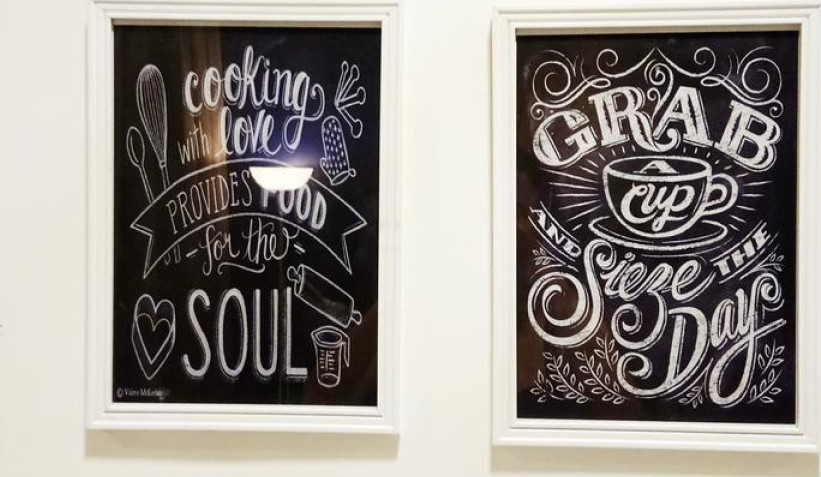 cooking
with love
PROVIDES FOOD
for the
SOUL
GRAB
A
cup
AND
Sieze THE
Day